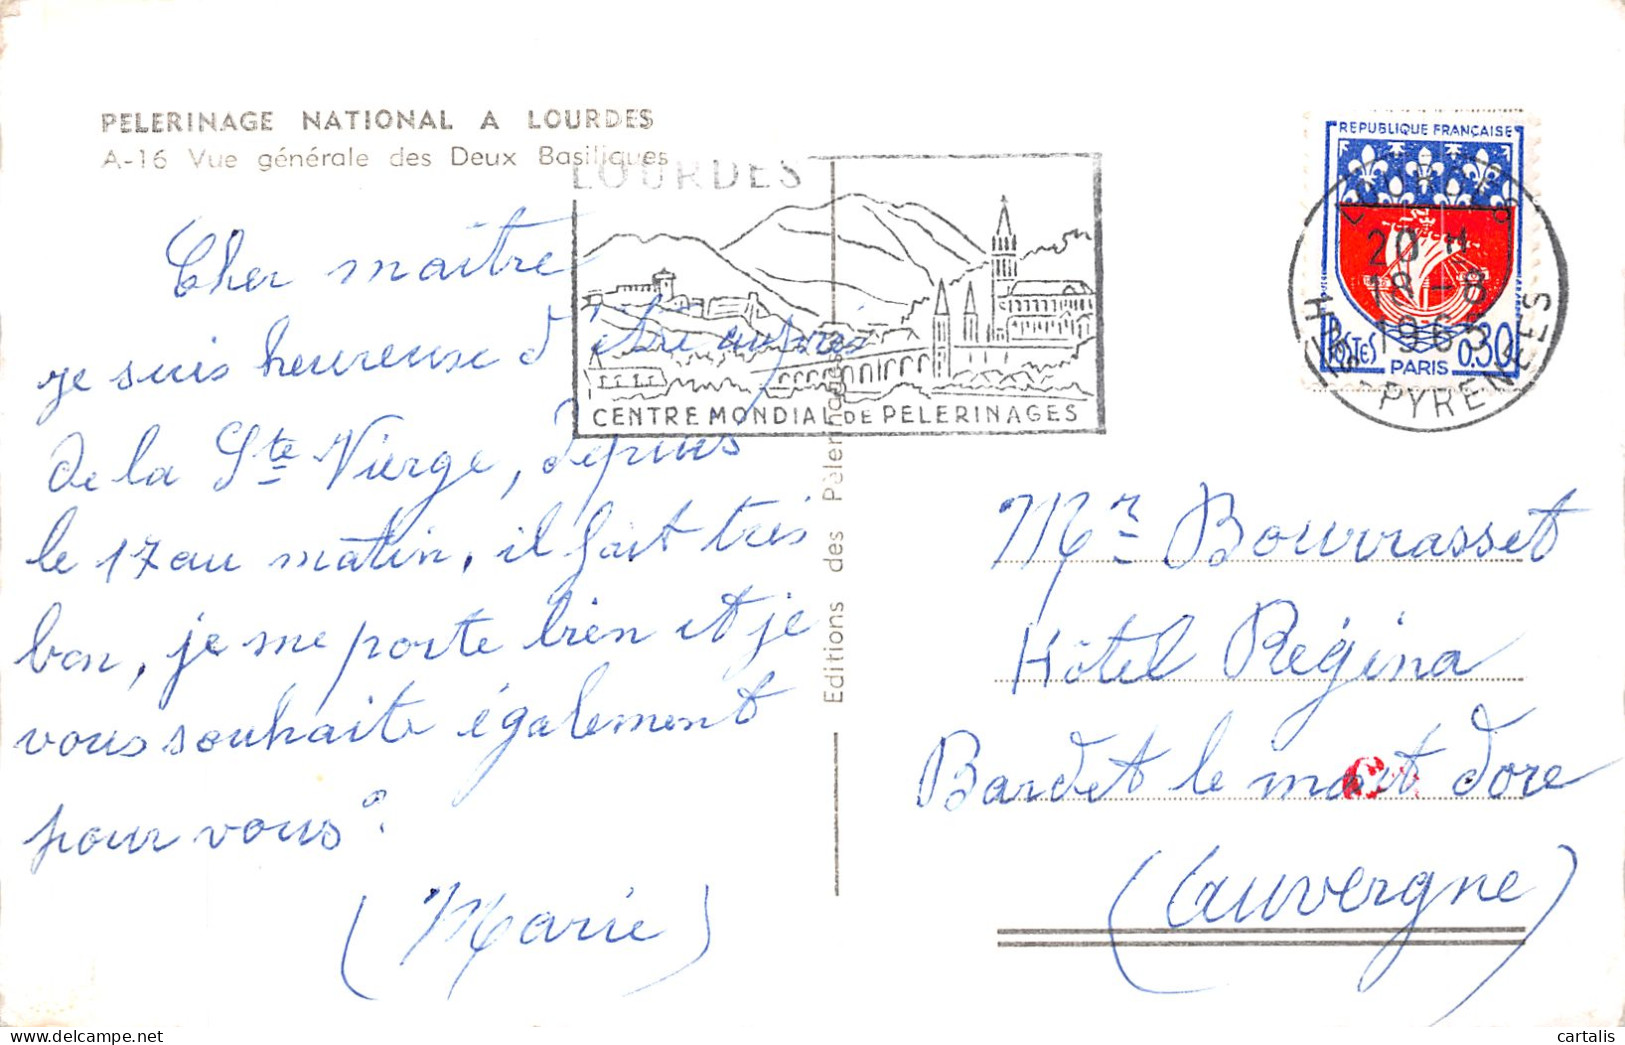 PELERINAGE NATIONAL A LOURDES
A-16 Vue générale des Deux Basiliques
LOURDES
CENTRE MONDIAL DE PELERINAGES
REPUBLIQUE FRANÇAISE
POSTES
PARIS
0.30
LOURDES
20 H
18-8
1965
HTES-PYRENEES
Cher maître
je suis heureuse d'être auprès
de la Ste Vierge, depuis
le 17 au matin, il fait très
bon, je me porte bien et je
vous souhaite également
pour vous.
(Marie)
Editions des Pèlerinages
Mr Bourrasset
Hôtel Régina
Bardet le mont dore
(auvergne)
cartalis